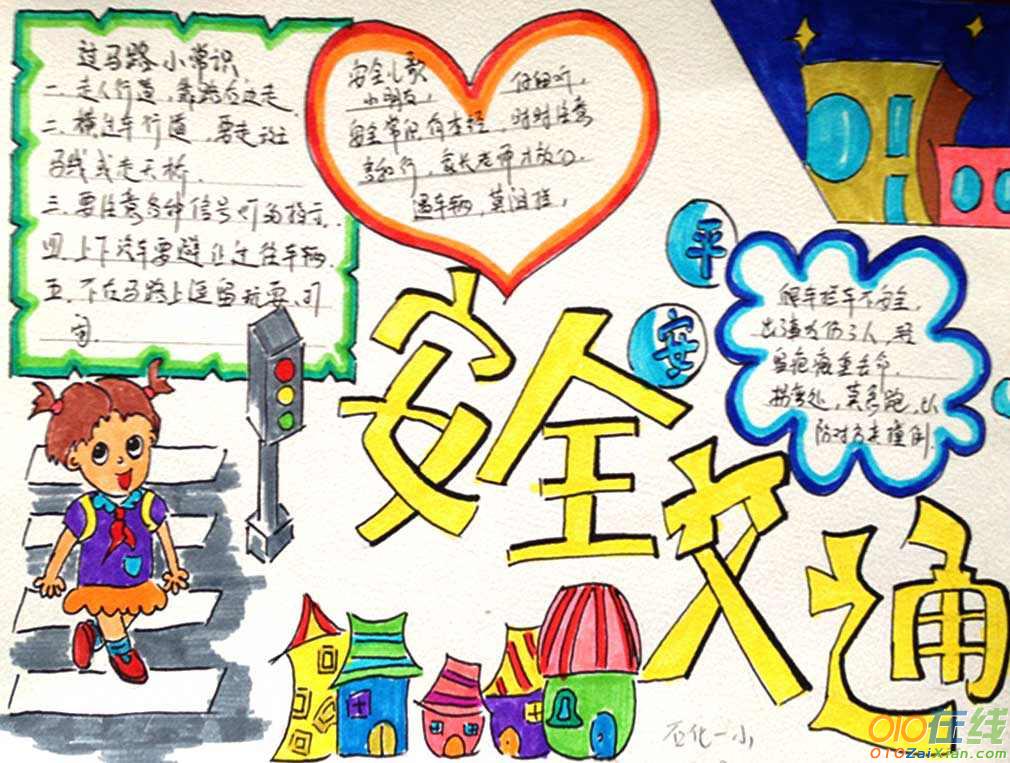 过马路小常识
一、走人行道,靠路右边走
二、横过车行道,要走斑
马线或走天桥.
三、要注意各种信号灯的指示.
四.上下汽车要避让过往车辆.
五、不在马路上逗留玩耍、打
闹.
安全儿歌
小朋友, 仔细听,
安全常识有本经,时时注意
多执行,家长老师才放心.
遇车辆,莫阻挡,
平
安
爬车拦车不安全,
伤了人,轻
留疤痕重丧命.
拐弯处,莫急跑,以
防对方来撞倒.
安全交通
石化一小
010在线
010ZaiXian.com